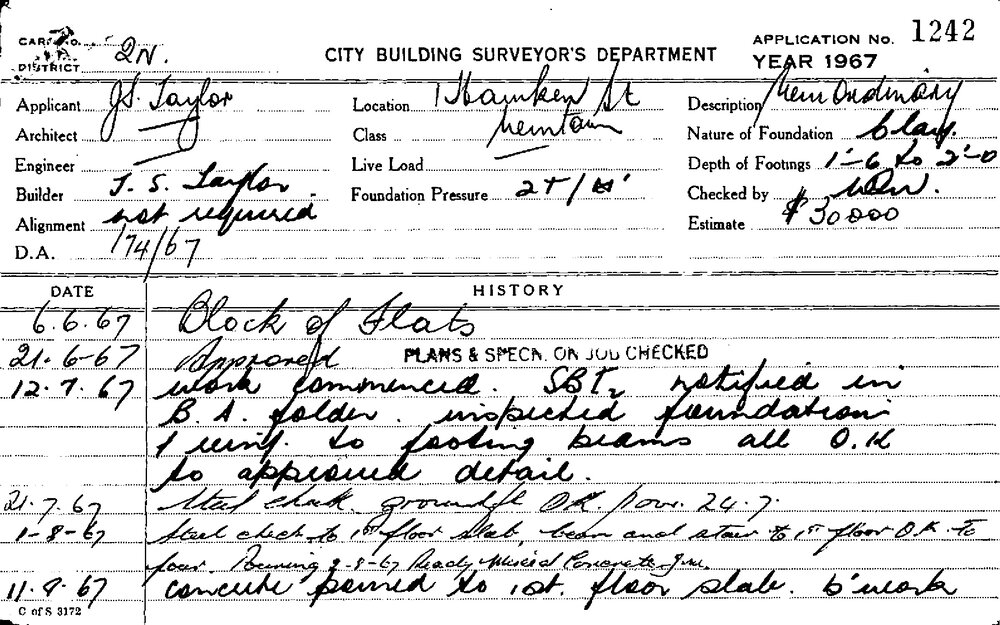 CARD No. APPLICATION No. 1242
DISTRICT 2N. CITY BUILDING SURVEYOR'S DEPARTMENT YEAR 1967
Applicant J.S. Taylor Location 1 Hawken St Description New Ordinary
Architect Class Newtown Nature of Foundation Clay.
Engineer Live Load Depth of Footings 1'-6 to 2'-0
Builder J. S. Taylor Foundation Pressure 2T/ Checked by
Alignment not required Estimate $30000
D.A. 174/67
DATE HISTORY
6.6.67 Block of Flats
21.6-67 Approved PLANS & SPECN. ON JOB CHECKED
12.7.67 work commenced. SBT2 notified in
B.A. folder. inspected foundation
& reinf. to footing beams all O.K
to approved detail.
21.7.67 Steel check. ground fl OK. pour 24.7.
1-8-67 Steel check to 1st floor slab, beam and stair to 1st floor O.K. To
pour. Pouring 2-8-67 Ready Mixed Concrete
11.8.67 concrete poured to 1st. floor slab. b'work
C of S 3172